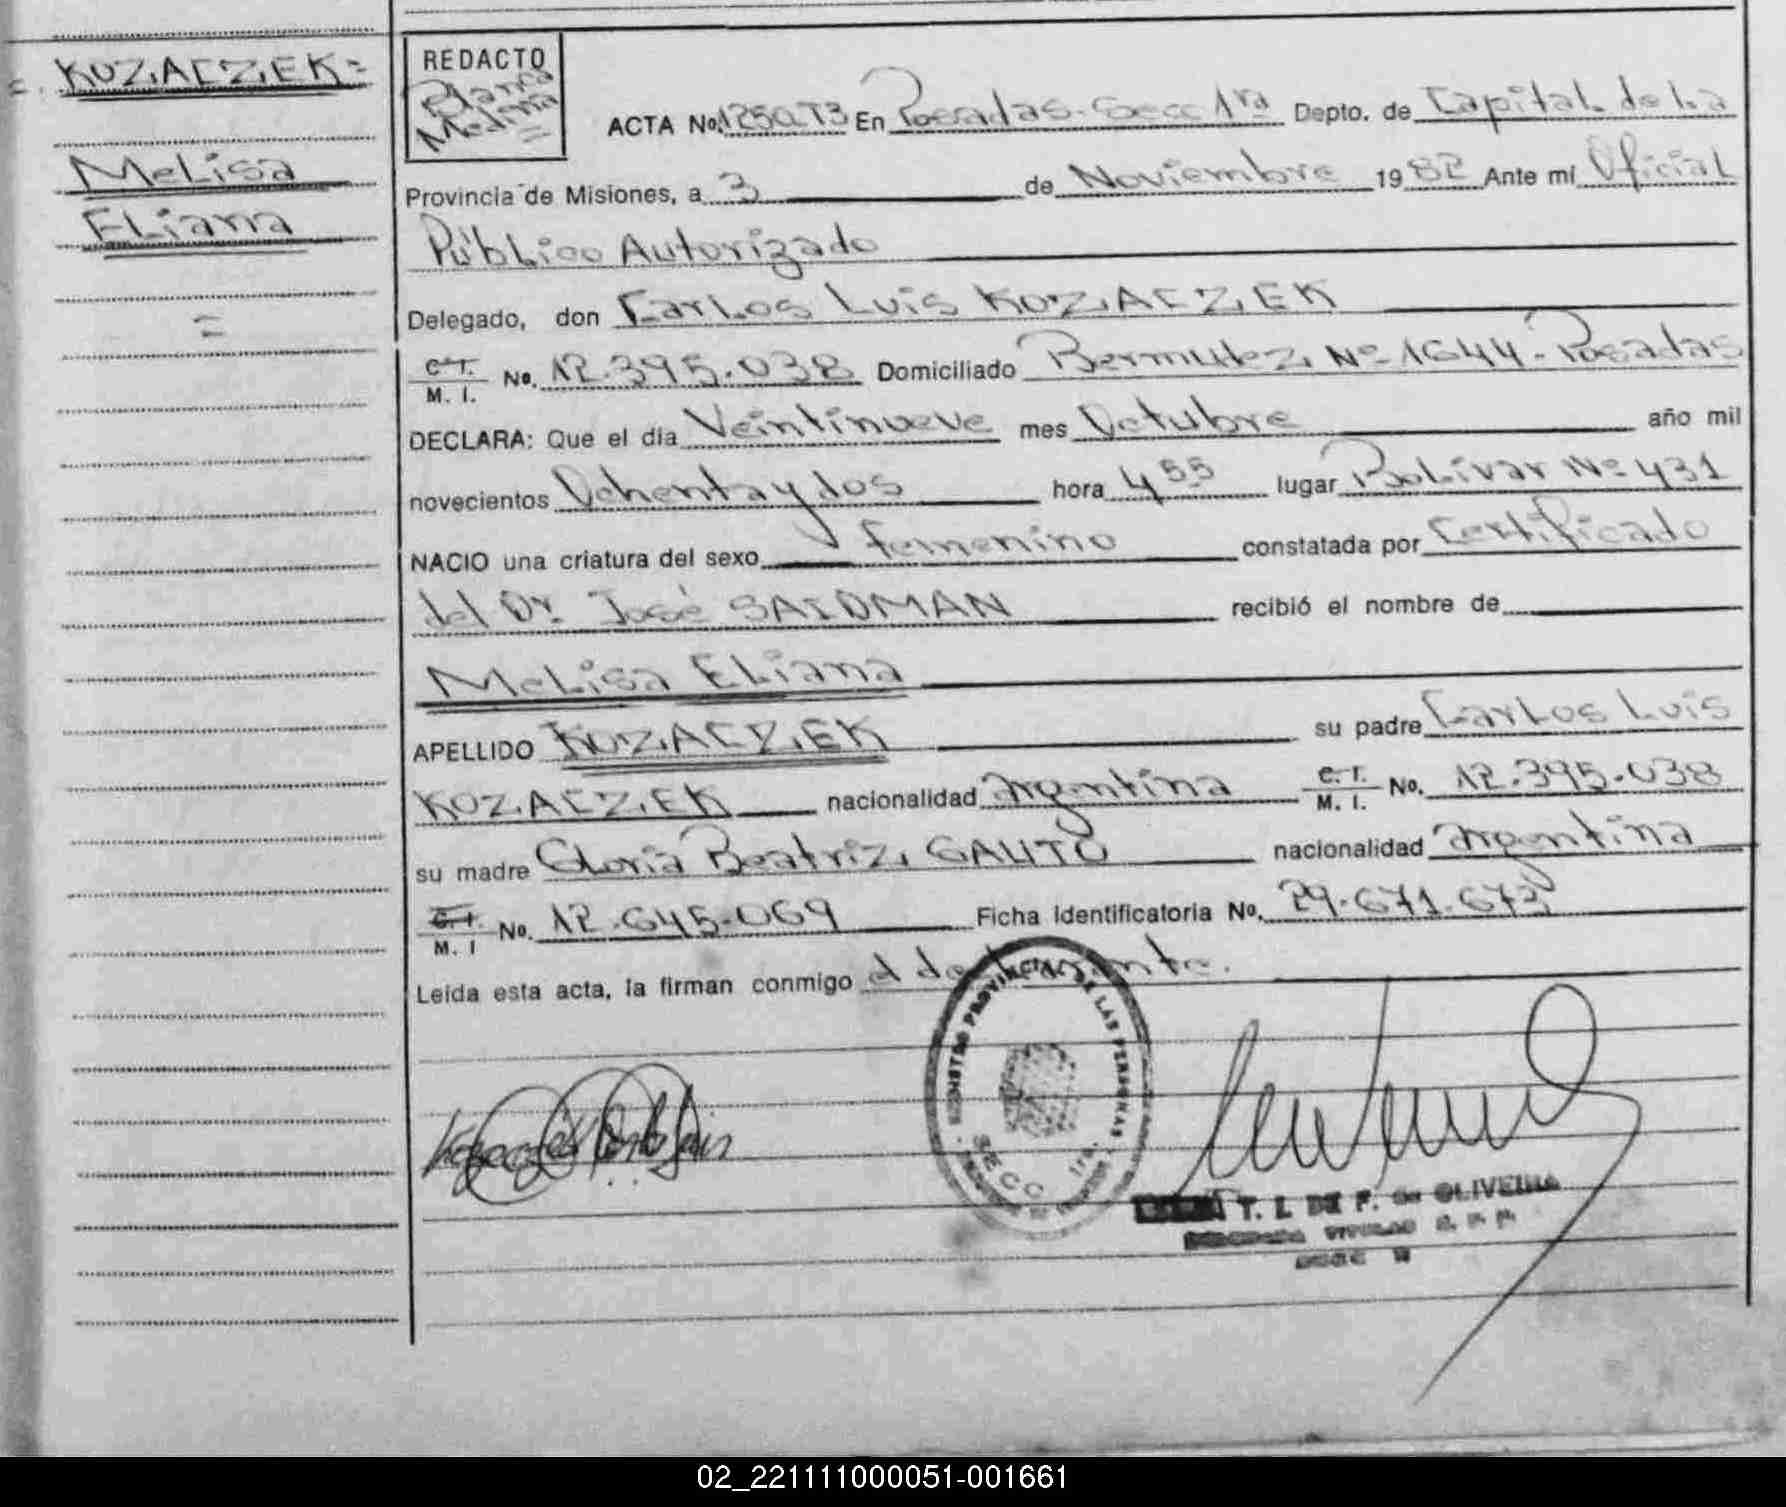 = KOZACZEK =
Melisa
Eliana
=
REDACTO
Blanca
Medina
=
ACTA No. 1250T3 En Posadas-Secc 1ra Depto. de Capital de La
Provincia de Misiones, a 3 de Noviembre 1982 Ante mí Oficial
Público Autorizado
Delegado, don Carlos Luis KOZACZEK
C. I. M. I. No. 12.395.038 Domiciliado Bermudez Nº 1644-Posadas
DECLARA: Que el día Veintinueve mes Octubre año mil
novecientos Ochenta y dos hora 4 55 lugar Bolívar Nº 431
NACIO una criatura del sexo femenino constatada por Certificado
del Dr. José SAIDMAN recibió el nombre de
Melisa Eliana
APELLIDO KOZACZEK su padre Carlos Luis
KOZACZEK nacionalidad Argentina C. I. M. I. No. 12.395.038
su madre Gloria Beatriz GAUTO nacionalidad Argentina
C. I. M. I No. 12.645.069 Ficha Identificatoria No. 29.671.673
Leída esta acta, la firman conmigo el declarante.
REGISTRO PROVINCIAL DE LAS PERSONAS
SECC 1ra.
T. I. DE F. de OLIVEIRA
TITULAR
02_221111000051-001661